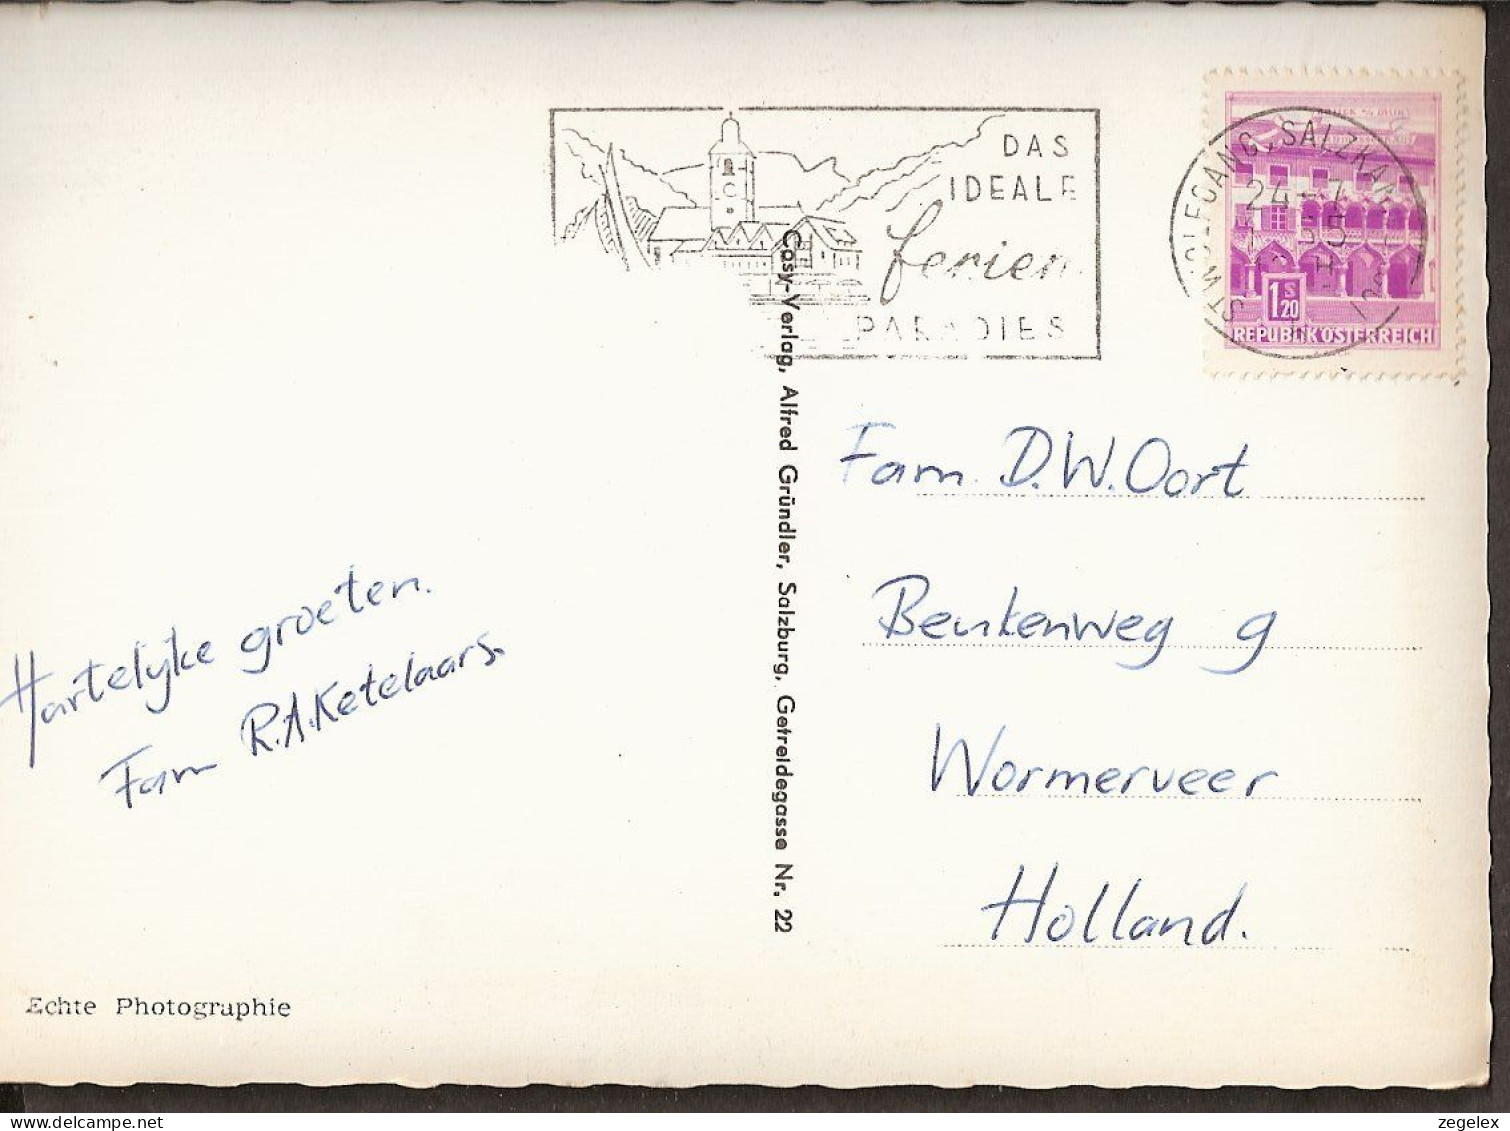 DAS
IDEALE
ferien
PARADIES
ST. WOLFGANG, SALZKAM
24.-7.
1S20
REPUBLIK ÖSTERREICH
Cosy-Verlag, Alfred Gründler, Salzburg, Getreidegasse Nr. 22
Fam. D.W. Oort
Beukenweg 9
Wormerveer
Holland.
Hartelijke groeten.
Fam R.A. Ketelaars.
Echte Photographie
zegelex